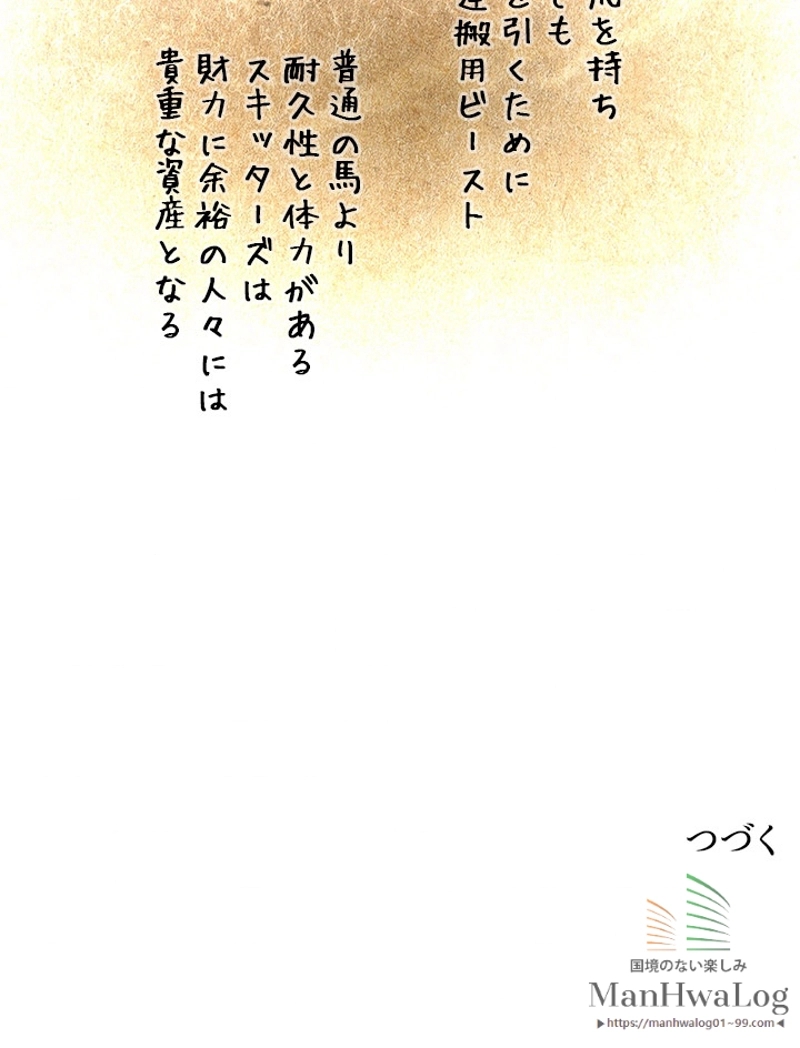 を持ち
も
を引くために
搬用ビースト
普通の馬より
耐久性と体力がある
スキッターズは
財力に余裕の人々には
貴重な資産となる
つづく
国境のない楽しみ
ManHwaLog
▶https://manhwalog01~99.com◀